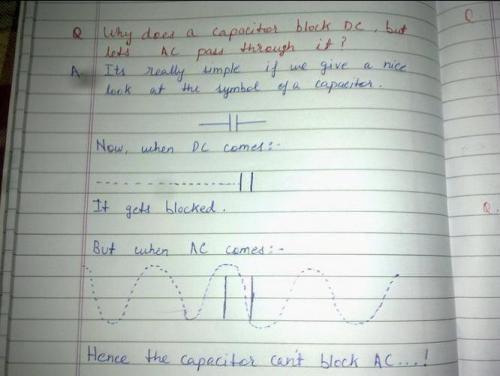 Q Why does a capacitor block DC, but
lets AC pass through it?
A Its really simple if we give a nice
look at the symbol of a capacitor.
Now, when DC comes:-
It gets blocked.
But when AC comes:-
Hence the capacitor can't block AC...!
Q.
Q.